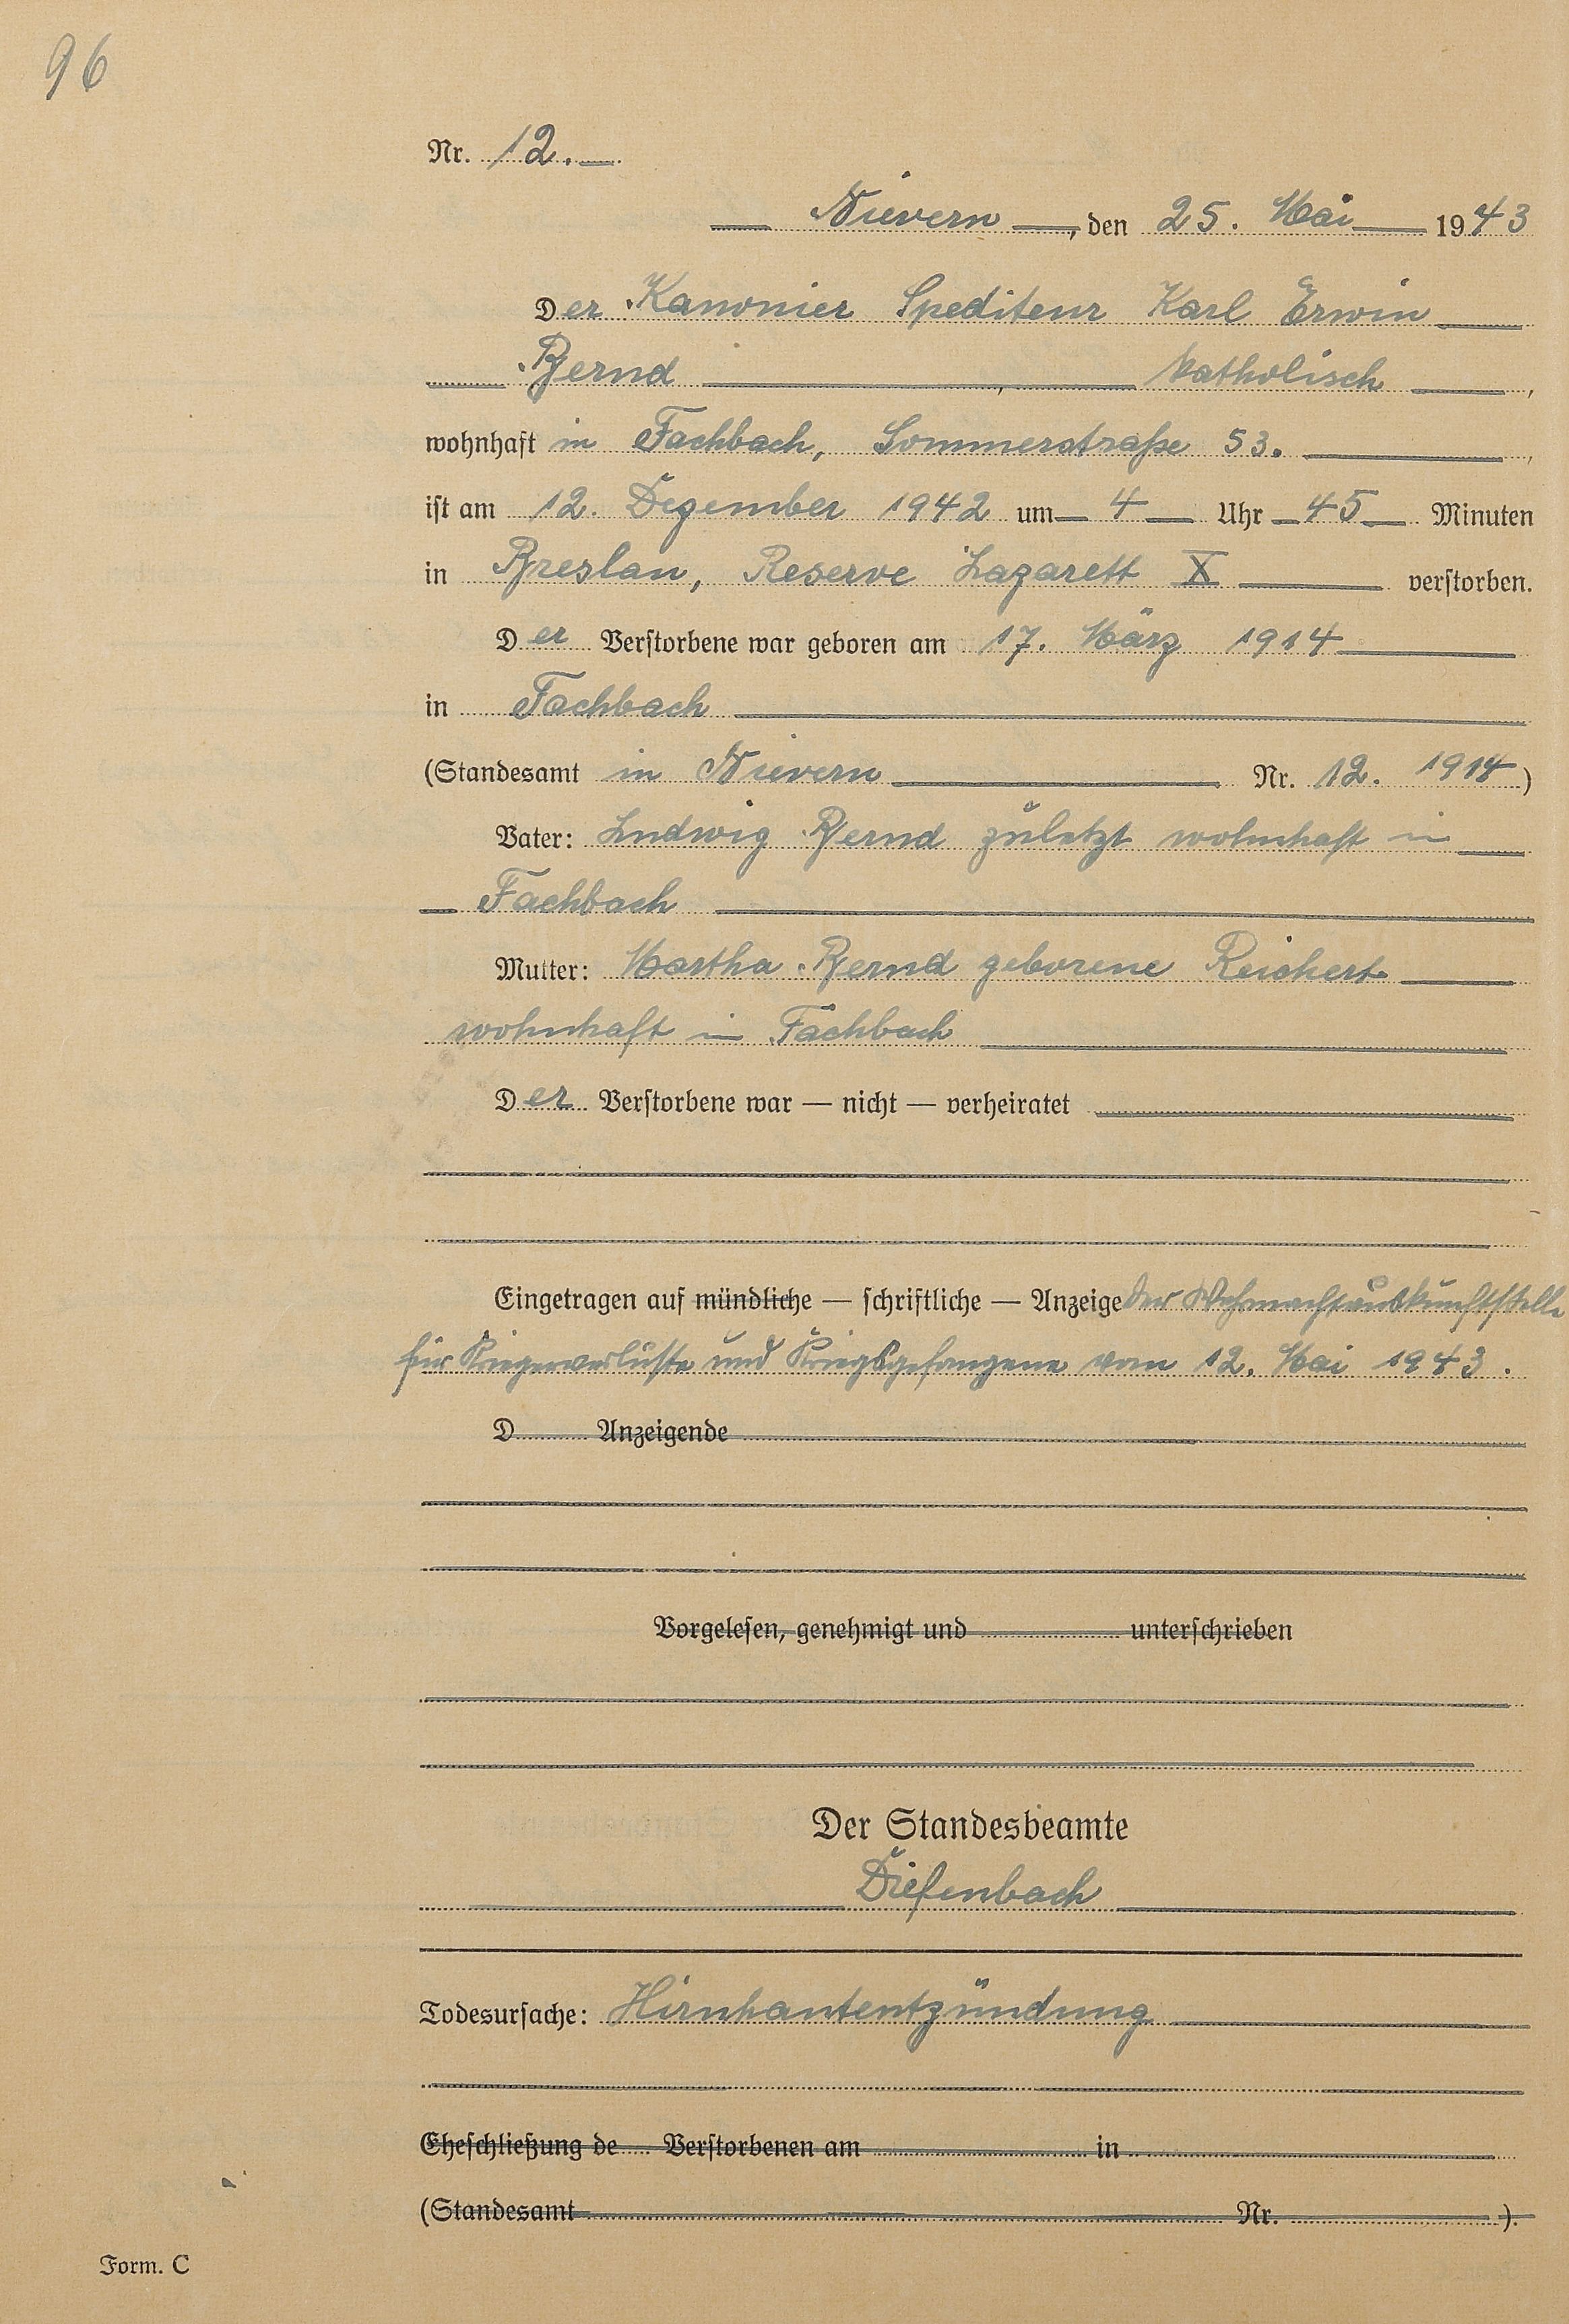 96
Nr. 12.
Nievern, den 25. Mai 1943
Der Kanonier Spediteur Karl Erwin
Bernd, katholisch,
wohnhaft in Fachbach, Sommerstraße 53.,
ist am 12. Dezember 1942 um 4 Uhr 45 Minuten
in Breslau, Reserve Lazarett X verstorben.
Der Verstorbene war geboren am 17. März 1914
in Fachbach
(Standesamt in Nievern Nr. 12. 1914)
Vater: Ludwig Bernd zuletzt wohnhaft in
Fachbach
Mutter: Martha Bernd geborene Reichert
wohnhaft in Fachbach
Der Verstorbene war — nicht — verheiratet
Eingetragen auf mündliche — schriftliche — Anzeige der Wehrmachtauskunftstelle
für Kriegerverluste und Kriegsgefangene vom 12. Mai 1943.
D Anzeigende
Vorgelesen, genehmigt und unterschrieben
Der Standesbeamte
Diefenbach
Todesursache: Hirnhautentzündung
Eheschließung de Verstorbenen am in
(Standesamt Nr. ).
Form. C